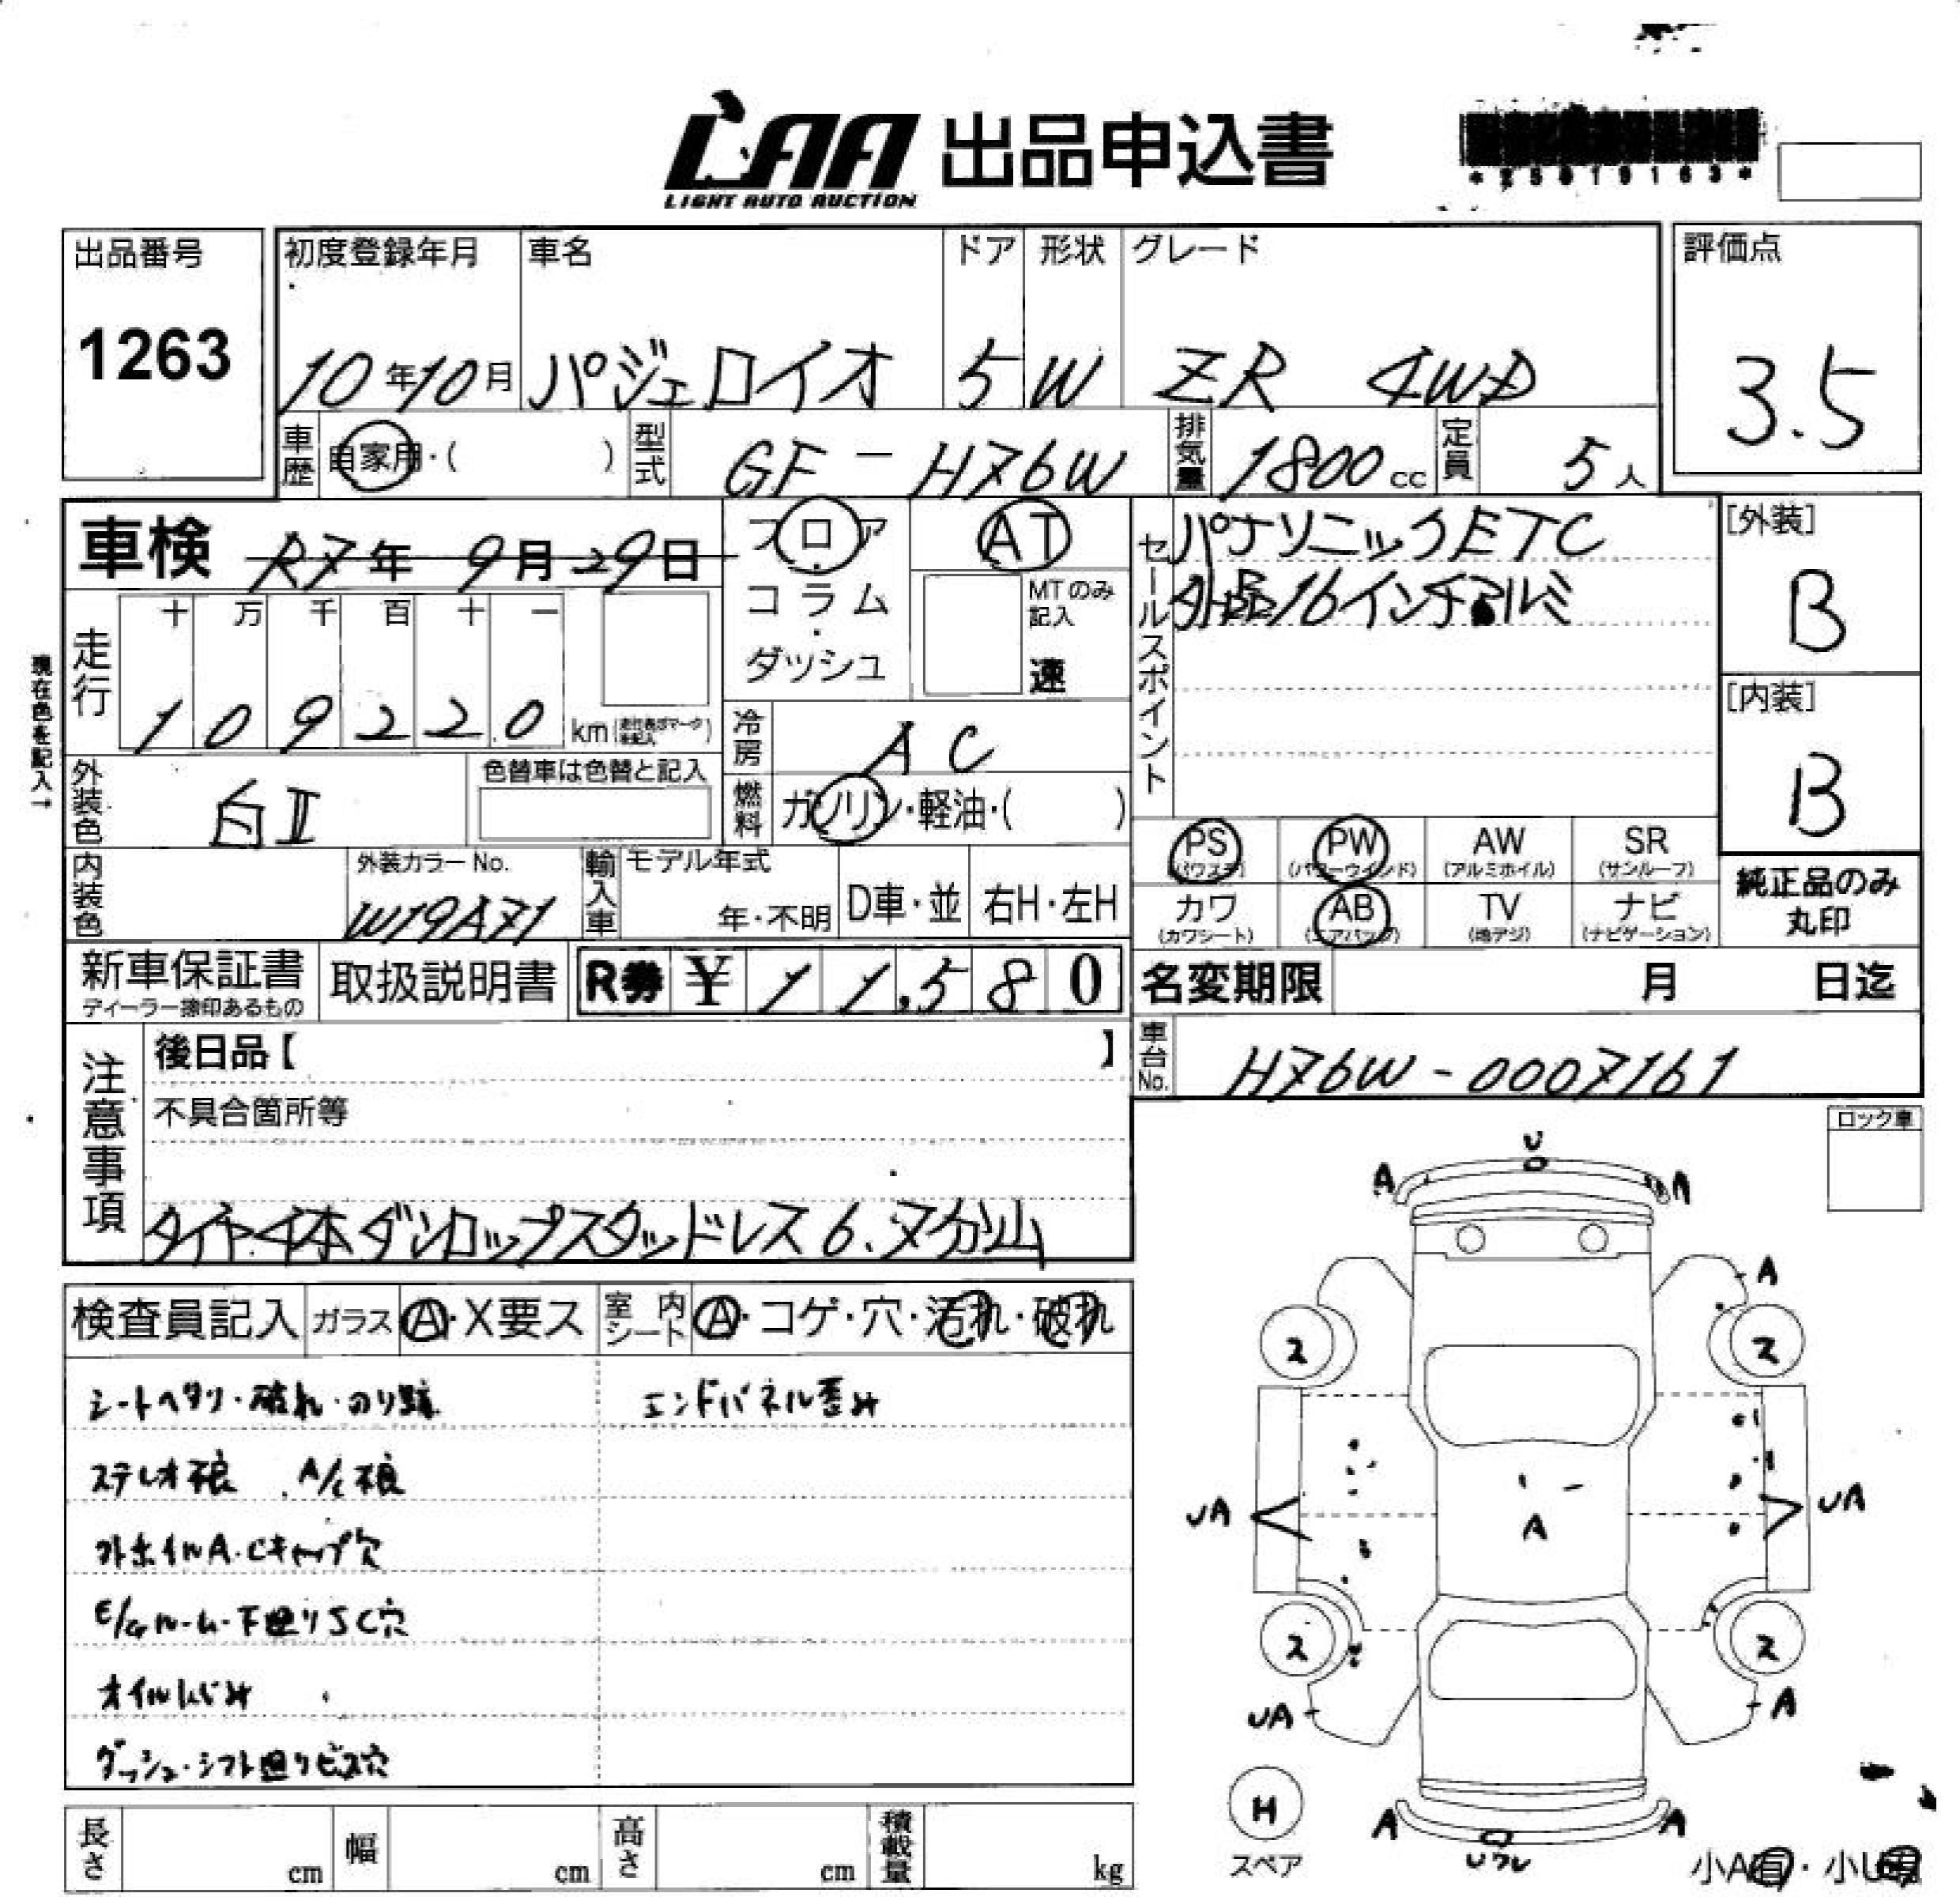 LAA 出品申込書
LIGHT AUTO AUCTION
出品番号
1263
初度登録年月 車名 ドア 形状 グレード
10年10月 パジェロイオ 5 W ZR 4WD
評価点
3.5
車歴 自家用・( ) 型式 GF-H76W 排気量 1800cc 定員 5人
車検 R7年 9月29日
フロア
コラム
ダッシュ
AT
MTのみ記入
速
セールスポイント
パナソニックETC
社外品16インチアルミ
[外装]
B
[内装]
B
走行
十 万 千 百 十 一
1 0 9 2 2 0 km
現在色を記入→
冷房 AC
燃料 ガソリン・軽油・( )
外装色 白II
色替車は色替と記入
内装色
外装カラーNo.
W19A71
輸入車
モデル年式
年・不明 D車・並 右H・左H
PS PW AW SR
(パワステ) (パワーウインド) (アルミホイル) (サンルーフ)
カワ AB TV ナビ
(カワシート) (エアバッグ) (地デジ) (ナビゲーション)
純正品のみ
丸印
新車保証書
ディーラー捺印あるもの
取扱説明書
R券 ¥ 1 1,5 8 0
名変期限 月 日迄
車台No. H76W-0007161
注意事項
後日品【 】
不具合箇所等
タイヤ4本ダンロップスタッドレス6.7分山
ロック車
検査員記入 ガラス A・X要ス 室内シート A・コゲ・穴・汚れ・破れ
シートヘタリ・破れ・のり跡
エンドパネル歪み
ステレオ不良 A/C不良
外ホイルA・Cキャップ欠
E/Gルーム・下廻りSC穴
オイルにじみ
ダッシュ・シフト廻りビス穴
U
A A
A
2 2
UA A UA
2 2
UA A
H
スペア
A A
長さ cm 幅 cm 高さ cm 積載量 kg
小A有・小U有